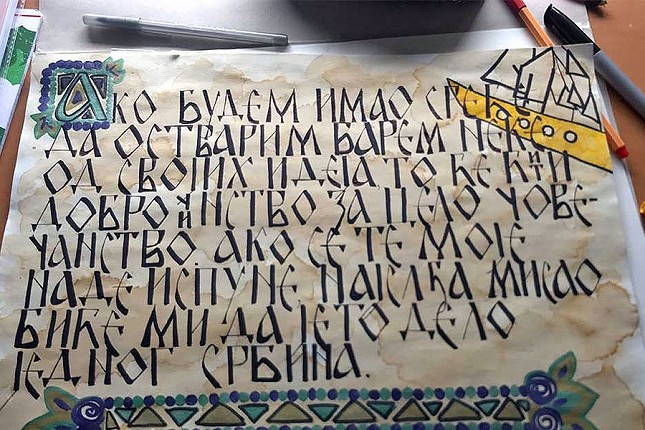 АКО БУДЕМ ИМАО СРЕЋЕ
ДА ОСТВАРИМ БАРЕМ НЕКЕ
ОД СВОЈИХ ИДЕЈА, ТО ЋЕ БИТИ
ДОБРОЧИНСТВО ЗА ЦЕЛО ЧОВЕ-
ЧАНСТВО. АКО СЕ ТЕ МОЈЕ
НАДЕ ИСПУНЕ, НАЈСЛАЂА МИСАО
БИЋЕ МИ ДА ЈЕ ТО ДЕЛО
ЈЕДНОГ СРБИНА.